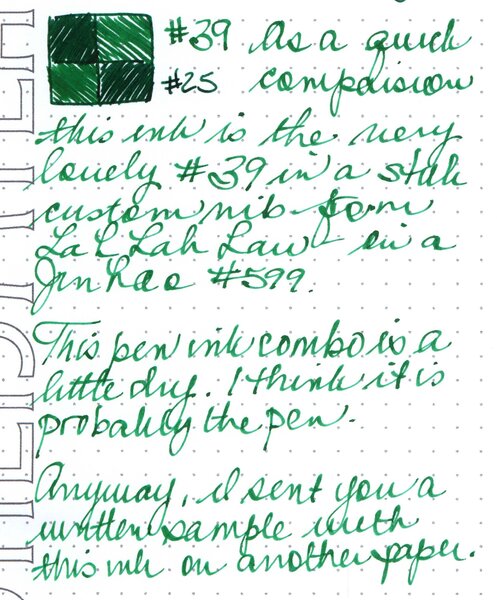 #39 As a quick
#25 compdision
this ink is the very
lovely #39 in a stub
custom nib form
Lah Lah Law - in a
Jinhao #599.
This pen ink combo is a
little dry. I think it is
probably the pen.
Anyway, I sent you a
written sample with
this ink on another paper.